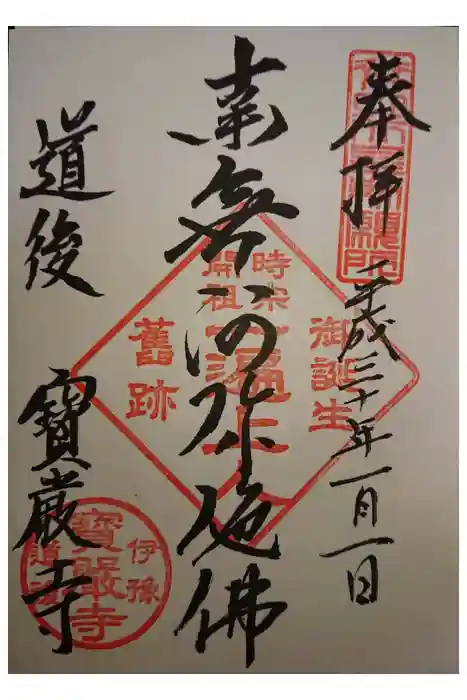 奉拝
平成三十年一月一日
南無阿弥陀佛
道後 寶厳寺
時宗
開祖
一遍上人
御誕生
舊跡
伊豫
寶嚴寺
道後